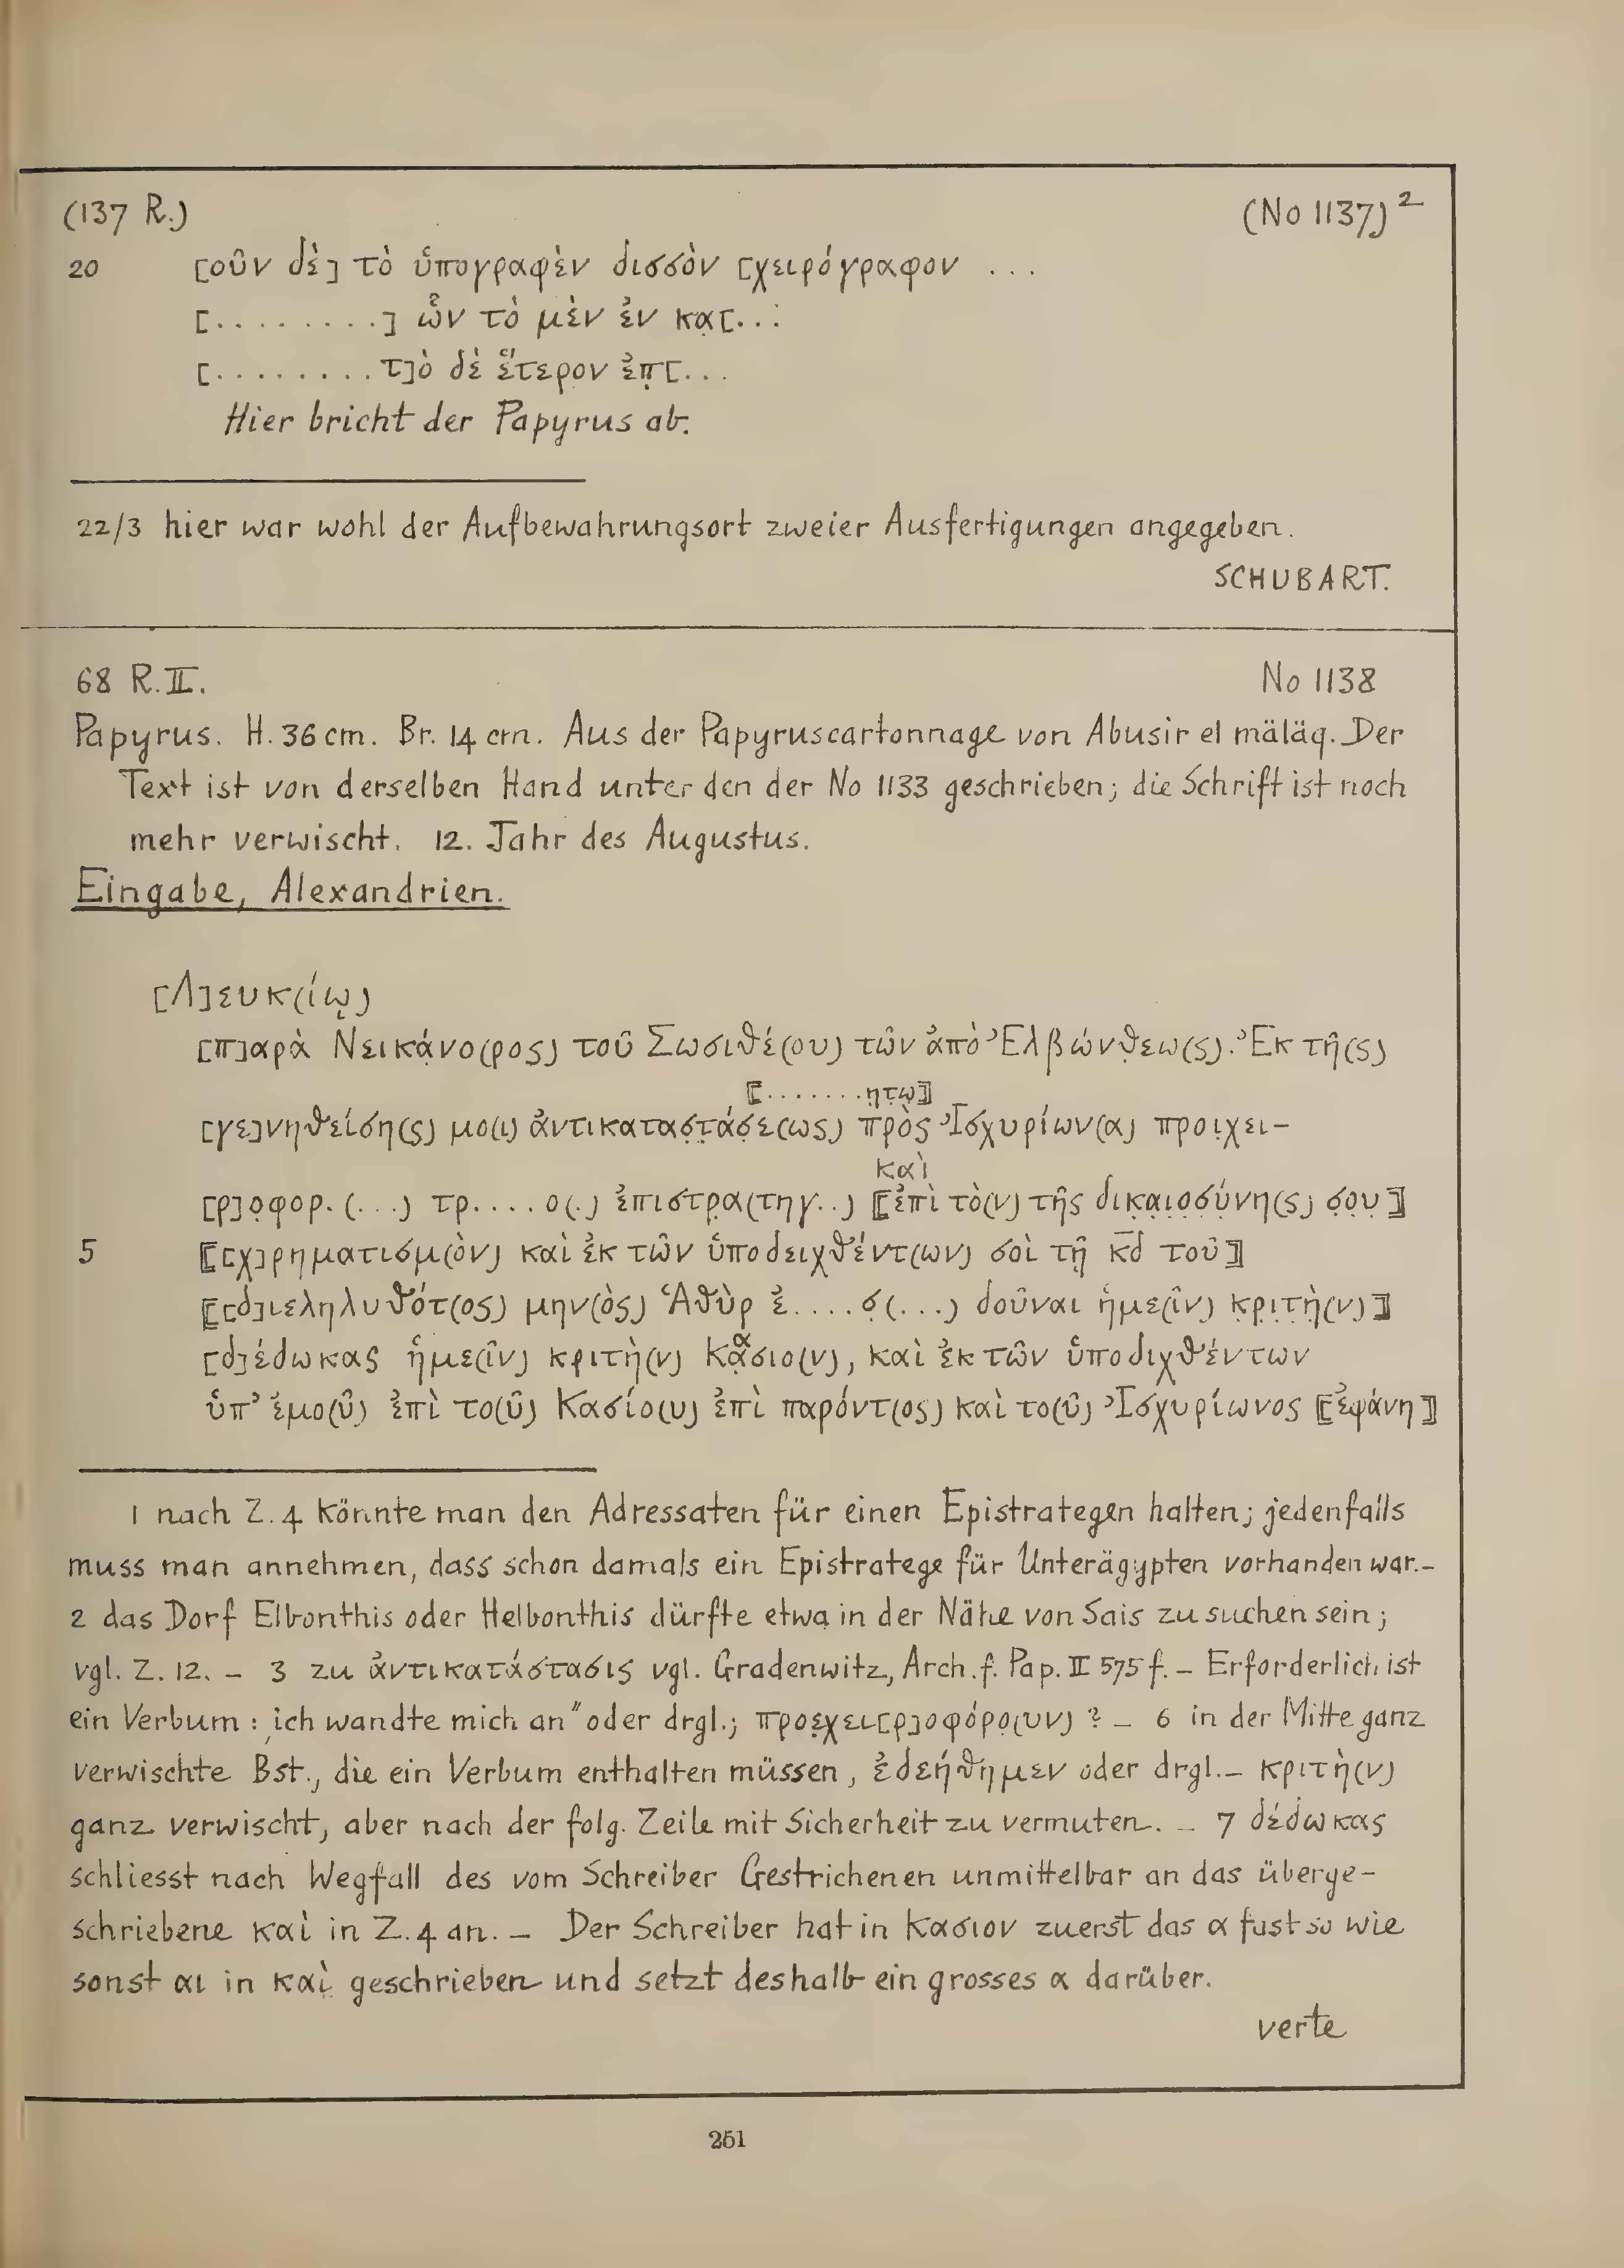 (137 R.) (No 1137)²
20 [οῦν δὲ] τὸ ὑπογραφὲν δισσὸν [χειρόγραφον ...
[.........] ὧν τὸ μὲν ἐν κα̣[...
[........τ]ὸ δὲ ἕτερον ἐπ̣[...
Hier bricht der Papyrus ab.
22/3 hier war wohl der Aufbewahrungsort zweier Ausfertigungen angegeben.
SCHUBART.
68 R. II. No 1138
Papyrus. H. 36 cm. Br. 14 cm. Aus der Papyruscartonnage von Abusir el mäläq. Der
Text ist von derselben Hand unter den der No 1133 geschrieben; die Schrift ist noch
mehr verwischt. 12. Jahr des Augustus.
Eingabe, Alexandrien.
[Λ]ευκ(ίῳ)
[π]αρὰ Νεικά̣νο(ρος) τοῦ Σωσιθέ(ου) τῶν ἀπὸ Ἑλβώνθ̣εω(ς). Ἐκ τῆ(ς)
⟦.......η̣τ̣ῳ̣⟧
[γε]νηθείση(ς) μο(ι) ἀντικατασ̣τ̣ά̣σ̣ε(ως) πρὸς Ἰσχυρίων(α) προι̣χει-
καὶ
[ρ]ο̣φορ. (...) τρ.... ο(.) ἐπιστρα(τηγ..) ⟦ἐπὶ τὸ(ν) τῆς δικ̣α̣ι̣ο̣σ̣ύ̣νη(ς) σ̣ο̣υ̣⟧
5 ⟦[χ]ρηματισμ(ὸν) καὶ ἐκ τῶν ὑποδειχθέντ(ων) σοὶ τῇ κ̅δ̅ τοῦ⟧
⟦[δ]ιεληλυθότ(ος) μην(ὸς) Ἁθὺρ ἐ....σ̣(...) δοῦναι ἡμε(ῖν) κ̣ρ̣ι̣τ̣ὴ̣(ν)⟧
[δ]έδωκας ἡμε(ῖν) κριτὴ(ν) Κά̣σιο(ν), καὶ ἐκ τῶν ὑποδιχθέντων
ὑπ' ἐμο(ῦ) ἐπὶ το(ῦ) Κασίο(υ) ἐπὶ παρόντ(ος) καὶ το(ῦ) Ἰσχυρίωνος ⟦ἐφάνη⟧
1 nach Z. 4 könnte man den Adressaten für einen Epistrategen halten; jedenfalls
muss man annehmen, dass schon damals ein Epistratege für Unterägypten vorhanden war.–
2 das Dorf Elbonthis oder Helbonthis dürfte etwa in der Nähe von Sais zu suchen sein;
vgl. Z. 12. – 3 zu ἀντικατάστασις vgl. Gradenwitz, Arch. f. Pap. II 575 f. – Erforderlich ist
ein Verbum: „ich wandte mich an" oder drgl.; προε̣χει[ρ]οφόρο̣(υν) ? – 6 in der Mitte ganz
verwischte Bst., die ein Verbum enthalten müssen, ἐδεήθημεν oder drgl. – κριτὴ(ν)
ganz verwischt, aber nach der folg. Zeile mit Sicherheit zu vermuten. – 7 δέδωκας
schliesst nach Wegfall des vom Schreiber Gestrichenen unmittelbar an das überge-
schriebene καὶ in Z. 4 an. – Der Schreiber hat in Κασιον zuerst das α fast so wie
sonst αι in καὶ geschrieben und setzt deshalb ein grosses α darüber.
verte
251